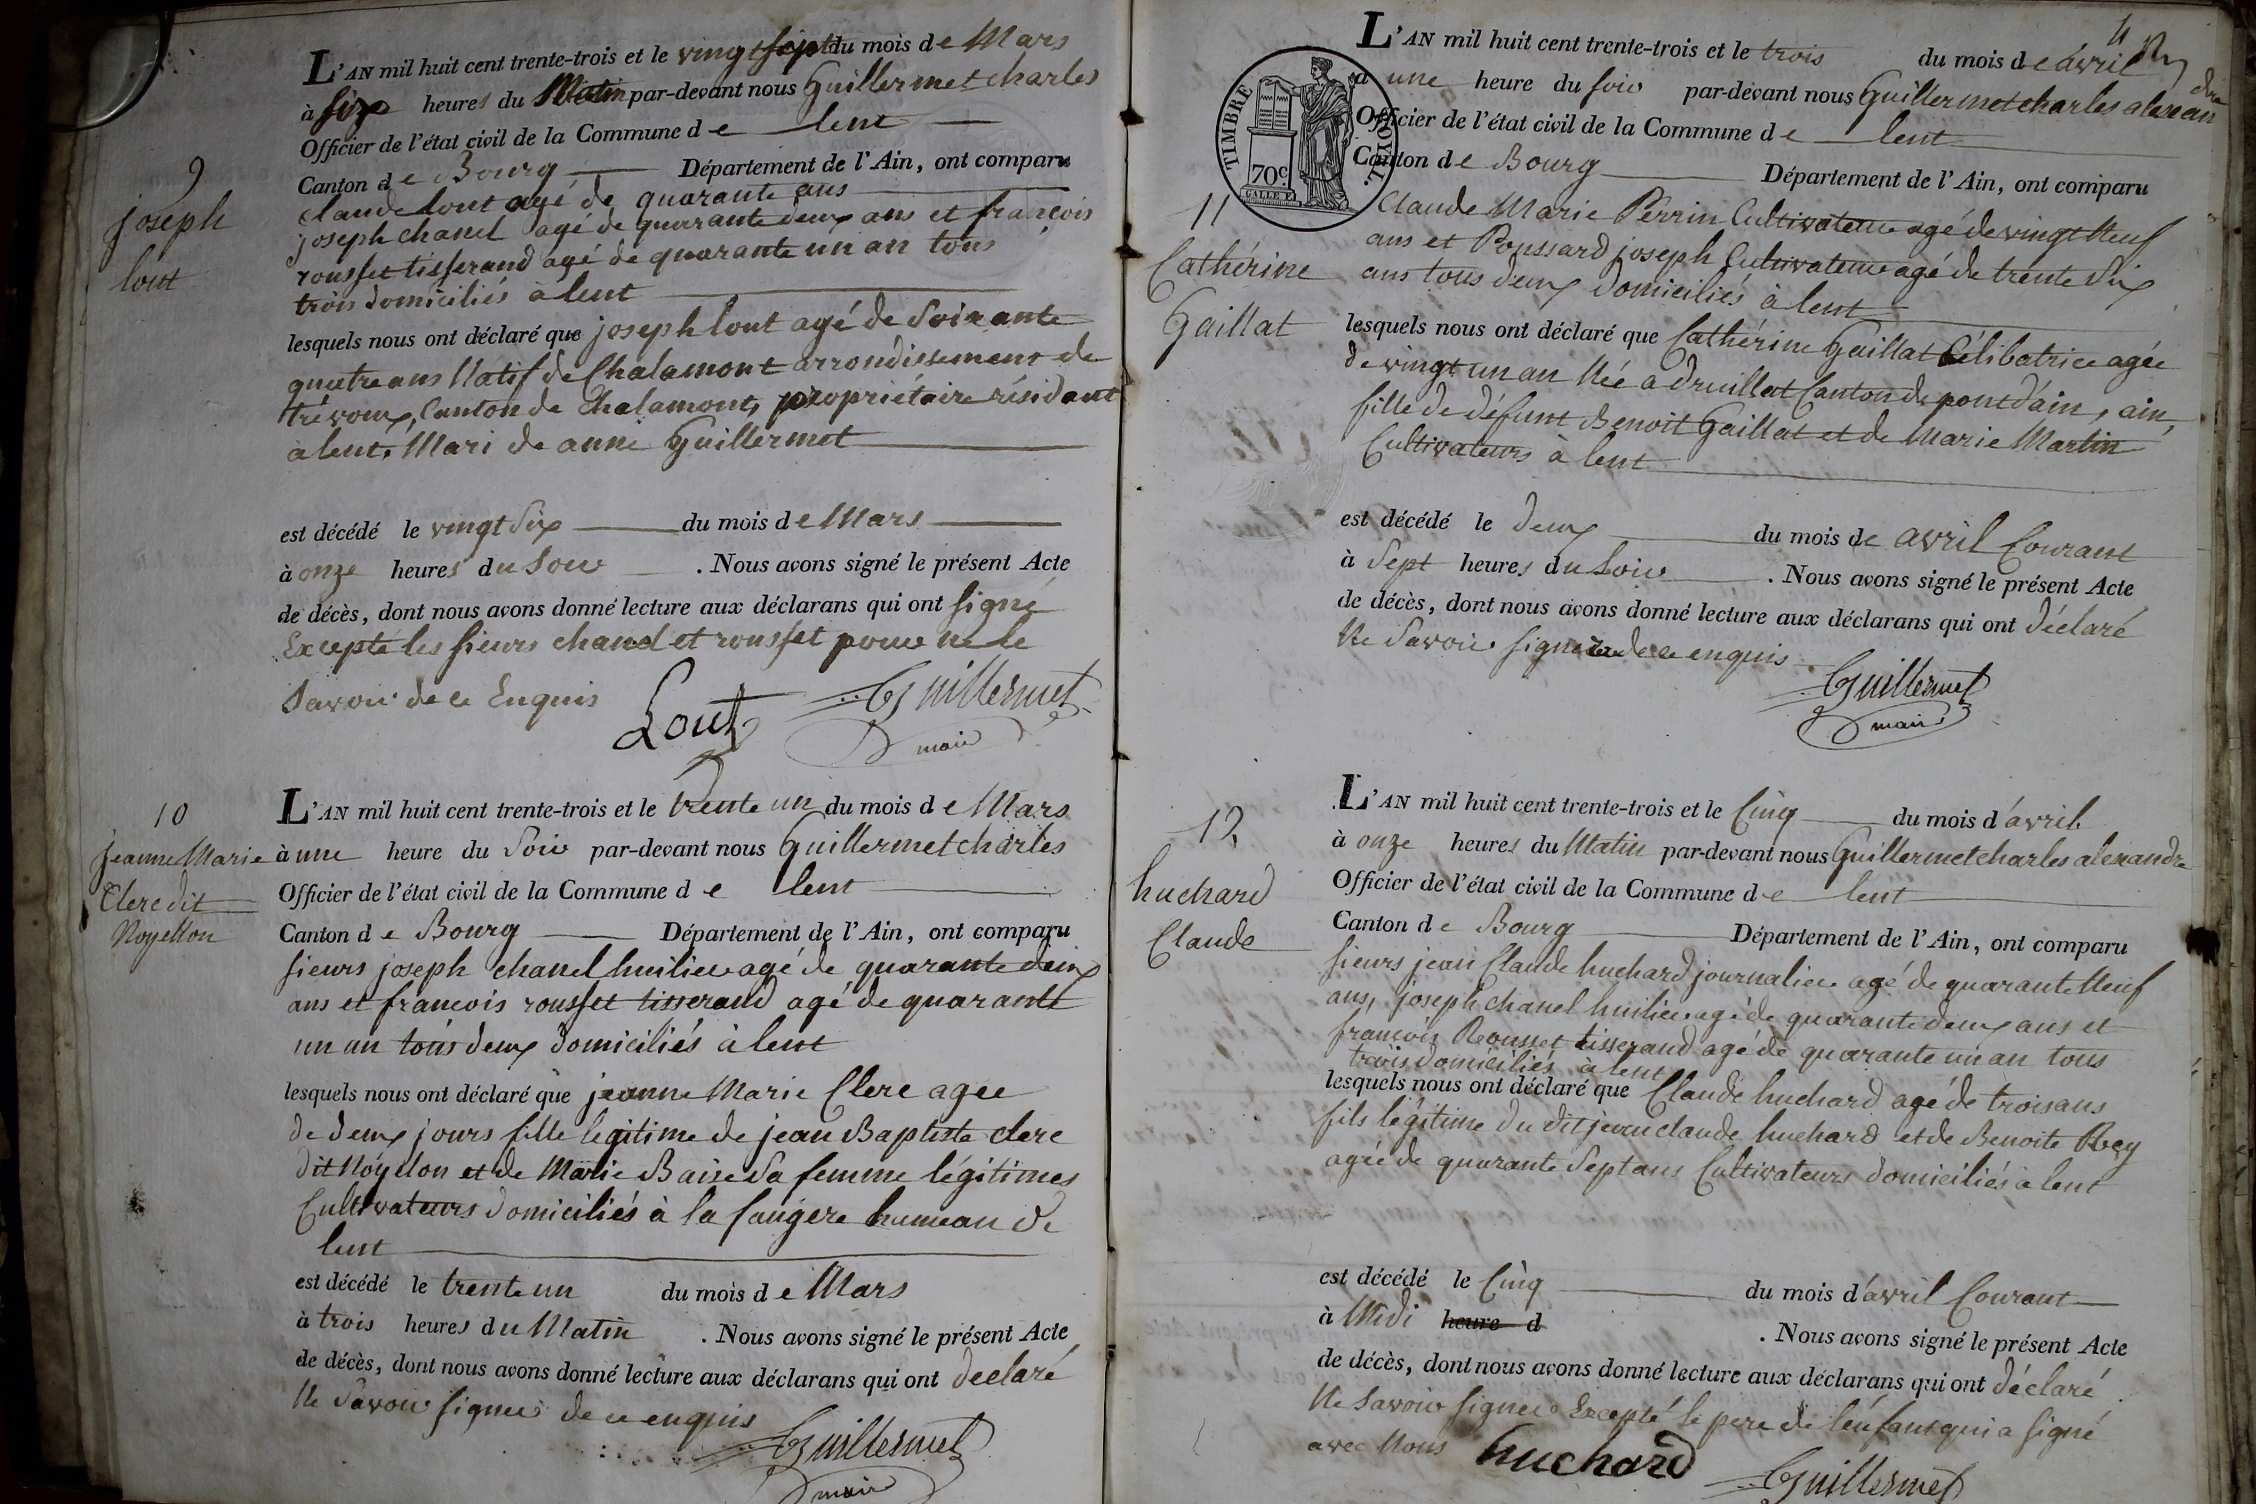 9
joseph
lout
L'AN mil huit cent trente-trois et le vingt sept du mois de Mars
à six heures du Matin par-devant nous Guillermet charles
Officier de l'état civil de la Commune de lent
Canton de Bourg Département de l'Ain, ont comparu
claude lout agé de quarante ans
joseph chanel agé de quarante deux ans et francois
rousset tisserand agé de quarante un an tous
trois domiciliés à lent
lesquels nous ont déclaré que joseph lout agé de Soixante
quatre ans Natif de Chalamont arrondissement de
trévoux, Canton de Chalamont, propriétaire résidant
a lent, Mari de anne Guillermet
est décédé le vingt Six du mois de Mars
à onze heures du Soir . Nous avons signé le présent Acte
de décès, dont nous avons donné lecture aux déclarans qui ont signé
Excepté les sieurs chanel et rousset pour ne le
Savoir de ce Enquis
Lout Guillermet
maire
10
jeanne Marie
Clerc dit
Noyellon
L'AN mil huit cent trente-trois et le trente un du mois de Mars
à une heure du Soir par-devant nous Guillermet charles
Officier de l'état civil de la Commune de lent
Canton de Bourg Département de l'Ain, ont comparu
sieurs joseph chanel huilier agé de quarante deux
ans et francois rousset tisserand agé de quarante
un an tous deux domiciliés à lent
lesquels nous ont déclaré que jeanne Marie Clerc agee
de deux jours fille légitime de jean Baptiste clerc
dit Noyellon et de Marie Baise Sa femme légitimes
Cultivateurs domiciliés à la fougere hameau de
lent
est décédé le trente un du mois de Mars
à trois heures du Matin . Nous avons signé le présent Acte
de décès, dont nous avons donné lecture aux déclarans qui ont declaré
Ne Savoir signer de ce enquis
Guillermet
maire
11
TIMBRE ROYAL.
70c.
Catherine
Gaillat
L'AN mil huit cent trente-trois et le trois du mois de avril
à une heure du soir par-devant nous Guillermet charles alexandre
Officier de l'état civil de la Commune de lent
Canton de Bourg Département de l'Ain, ont comparu
Claude Marie Perrin Cultivateur agé de vingt Neuf
ans et Poussard joseph Cultivateur agé de trente Six
ans tous deux domiciliés à lent
lesquels nous ont déclaré que Cathérine Gaillat Célibatrice agée
de vingt un an Née a druillat Canton de pont d'ain, ain,
fille de défunt Benoit Gaillat et de Marie Martin
Cultivateurs à lent
est décédé le deux du mois de avril Courant
à Sept heures du Soir . Nous avons signé le présent Acte
de décès, dont nous avons donné lecture aux déclarans qui ont déclaré
Ne Savoir signer de ce enquis
Guillermet
maire
12
huchard
Claude
L'AN mil huit cent trente-trois et le Cinq du mois d'avril
à onze heures du Matin par-devant nous Guillermet charles alexandre
Officier de l'état civil de la Commune de lent
Canton de Bourg Département de l'Ain, ont comparu
sieurs jean Claude huchard journalier agé de quarante Neuf
ans, joseph chanel huilier agé de quarante deux ans et
francois Rousset tisserand agé de quarante un an tous
trois domiciliés à lent
lesquels nous ont déclaré que Claude huchard agé de trois ans
fils légitime du dit jean claude huchard et de Benoite Rey
agée de quarante Sept ans Cultivateurs domiciliés à lent
est décédé le Cinq du mois d'avril Courant
à Midi heure d . Nous avons signé le présent Acte
de décès, dont nous avons donné lecture aux déclarans qui ont déclaré
Ne Savoir signer Excepté le pere de l'enfant qui a signé
avec Nous huchard Guillermet